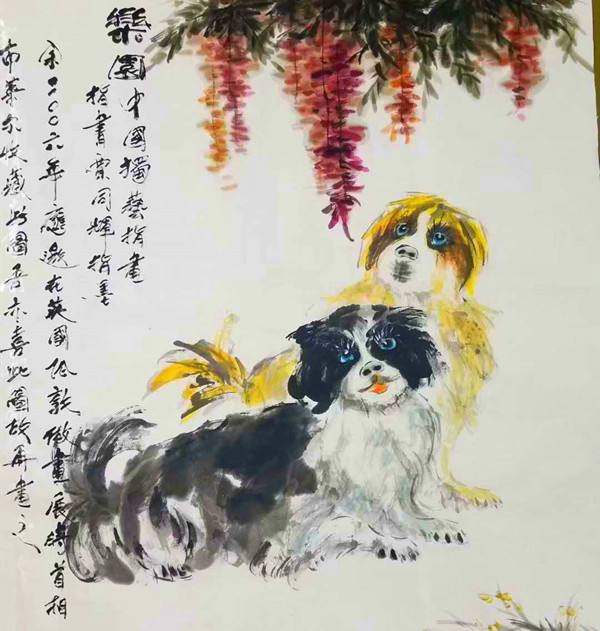 樂園
中國獨藝指畫
指書同輝指墨
余二〇〇六年應邀在英國倫敦做畫展時首相
布萊尔收藏此圖吾亦喜此圖故再畫之